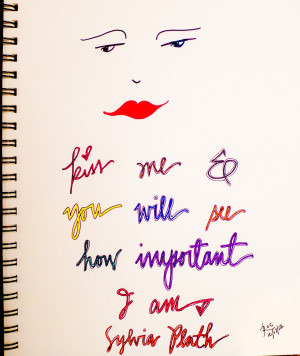 kiss me &
you will see
how important
I am
Sylvia Plath